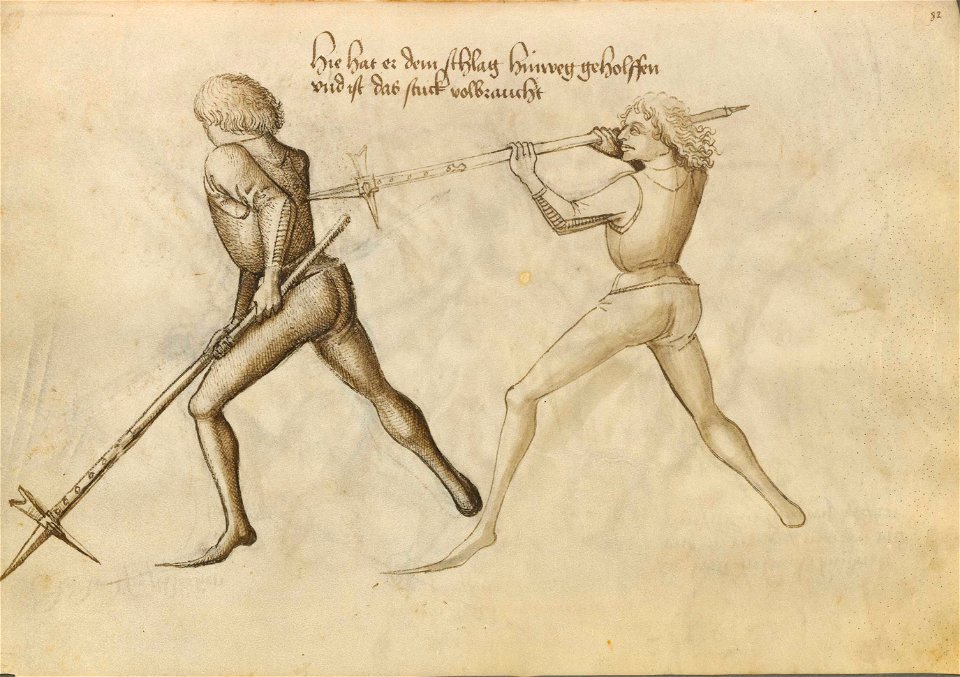 82
Hie hat er dem schlag hinweg geholffen
vnd ist das stuck volbraucht